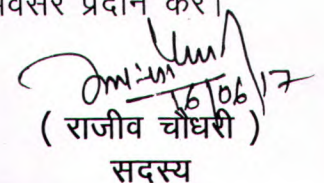 प्रदान करें।
16/06/17
( राजीव चौधरी )
सदस्य